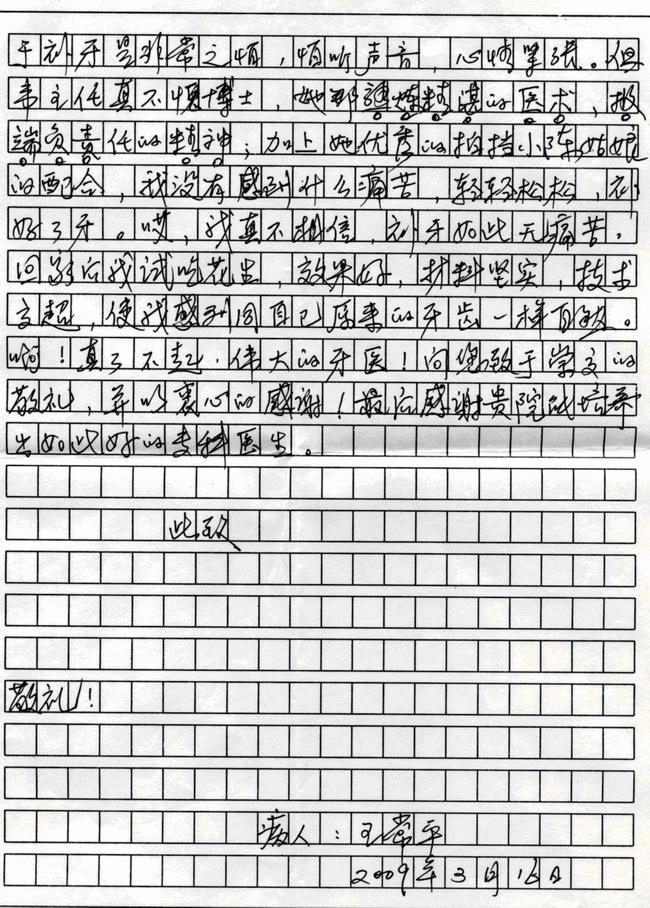 于补牙是非常之烦，烦听声音，心情紧张。但
韦主任真不愧博士，她那谨炼精湛的医术，极
端负责任的精神；加上她优秀的拍挡小陈姑娘
的配合，我没有感到什么痛苦，轻轻松松，补
好了牙。哎，我真不相信，补牙如此无痛苦。
回家后我试吃花生，效果好，材料坚实，技术
高超，使我感到同自己原来的牙齿一样自然。
啊！真了不起，伟大的牙医！向您致于崇高的
敬礼，并以衷心的感谢！最后感谢贵院能培养
出如此好的专科医生。
此致
敬礼！
病人：王常平
2009年3月16日